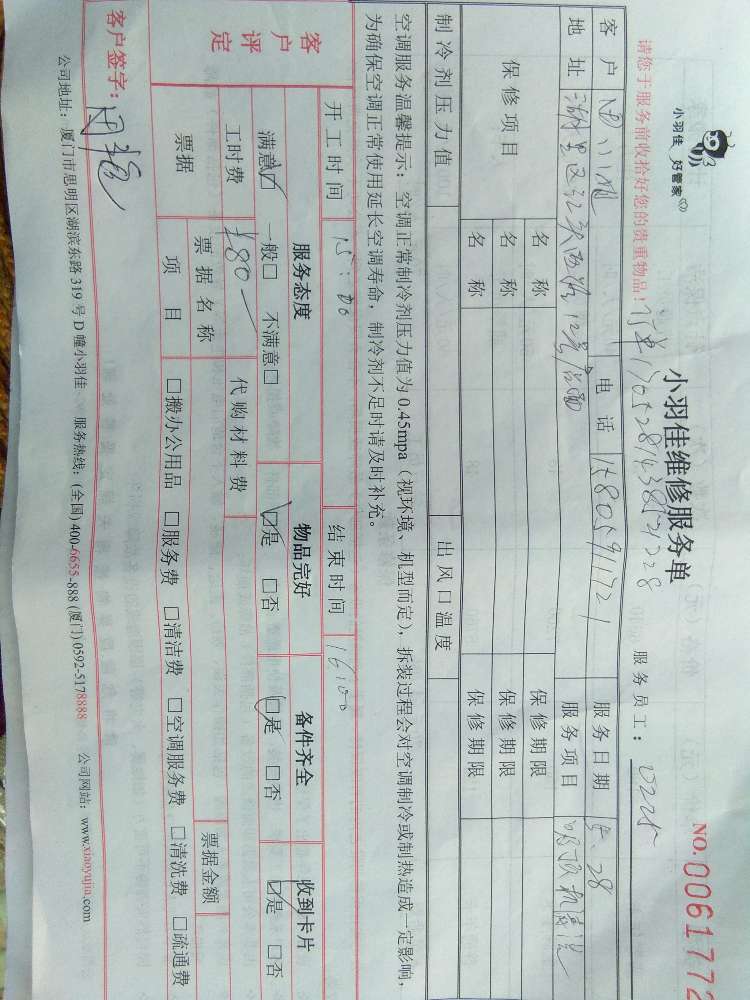 小羽佳 好管家
小羽佳维修服务单
NO.0061772
请您于服务前收拾好您的贵重物品！
订单170528143854728
服务员工：0225
客户 电话 15805911721 服务日期 5.28
地址 湖里区 12号 服务项目 吸顶机清洗
保修项目 名称 保修期限
名称 保修期限
名称 保修期限
制冷剂压力值 出风口温度
空调服务温馨提示：空调正常制冷剂压力值为 0.45mpa（视环境、机型而定），拆装过程会对空调制冷或制热造成一定影响，
为确保空调正常使用延长空调寿命，制冷剂不足时请及时补充。
开工时间 15:00 结束时间 16:00
客户评定 服务态度 物品完好 备件齐全 收到卡片
满意☑ 一般□ 不满意□ ☑是 □否 ☑是 □否 ☑是 □否
工时费 ¥80 代购材料费
票据 票据名称 票据金额
项目 □搬办公用品 □服务费 □清洁费 □空调服务费 □清洗费 □疏通费
客户签字：
公司地址：厦门市思明区湖滨东路 319 号 D 幢小羽佳 服务热线：(全国) 400-6655-888 (厦门) 0592-5178888 公司网站：www.xiaoyujia.com